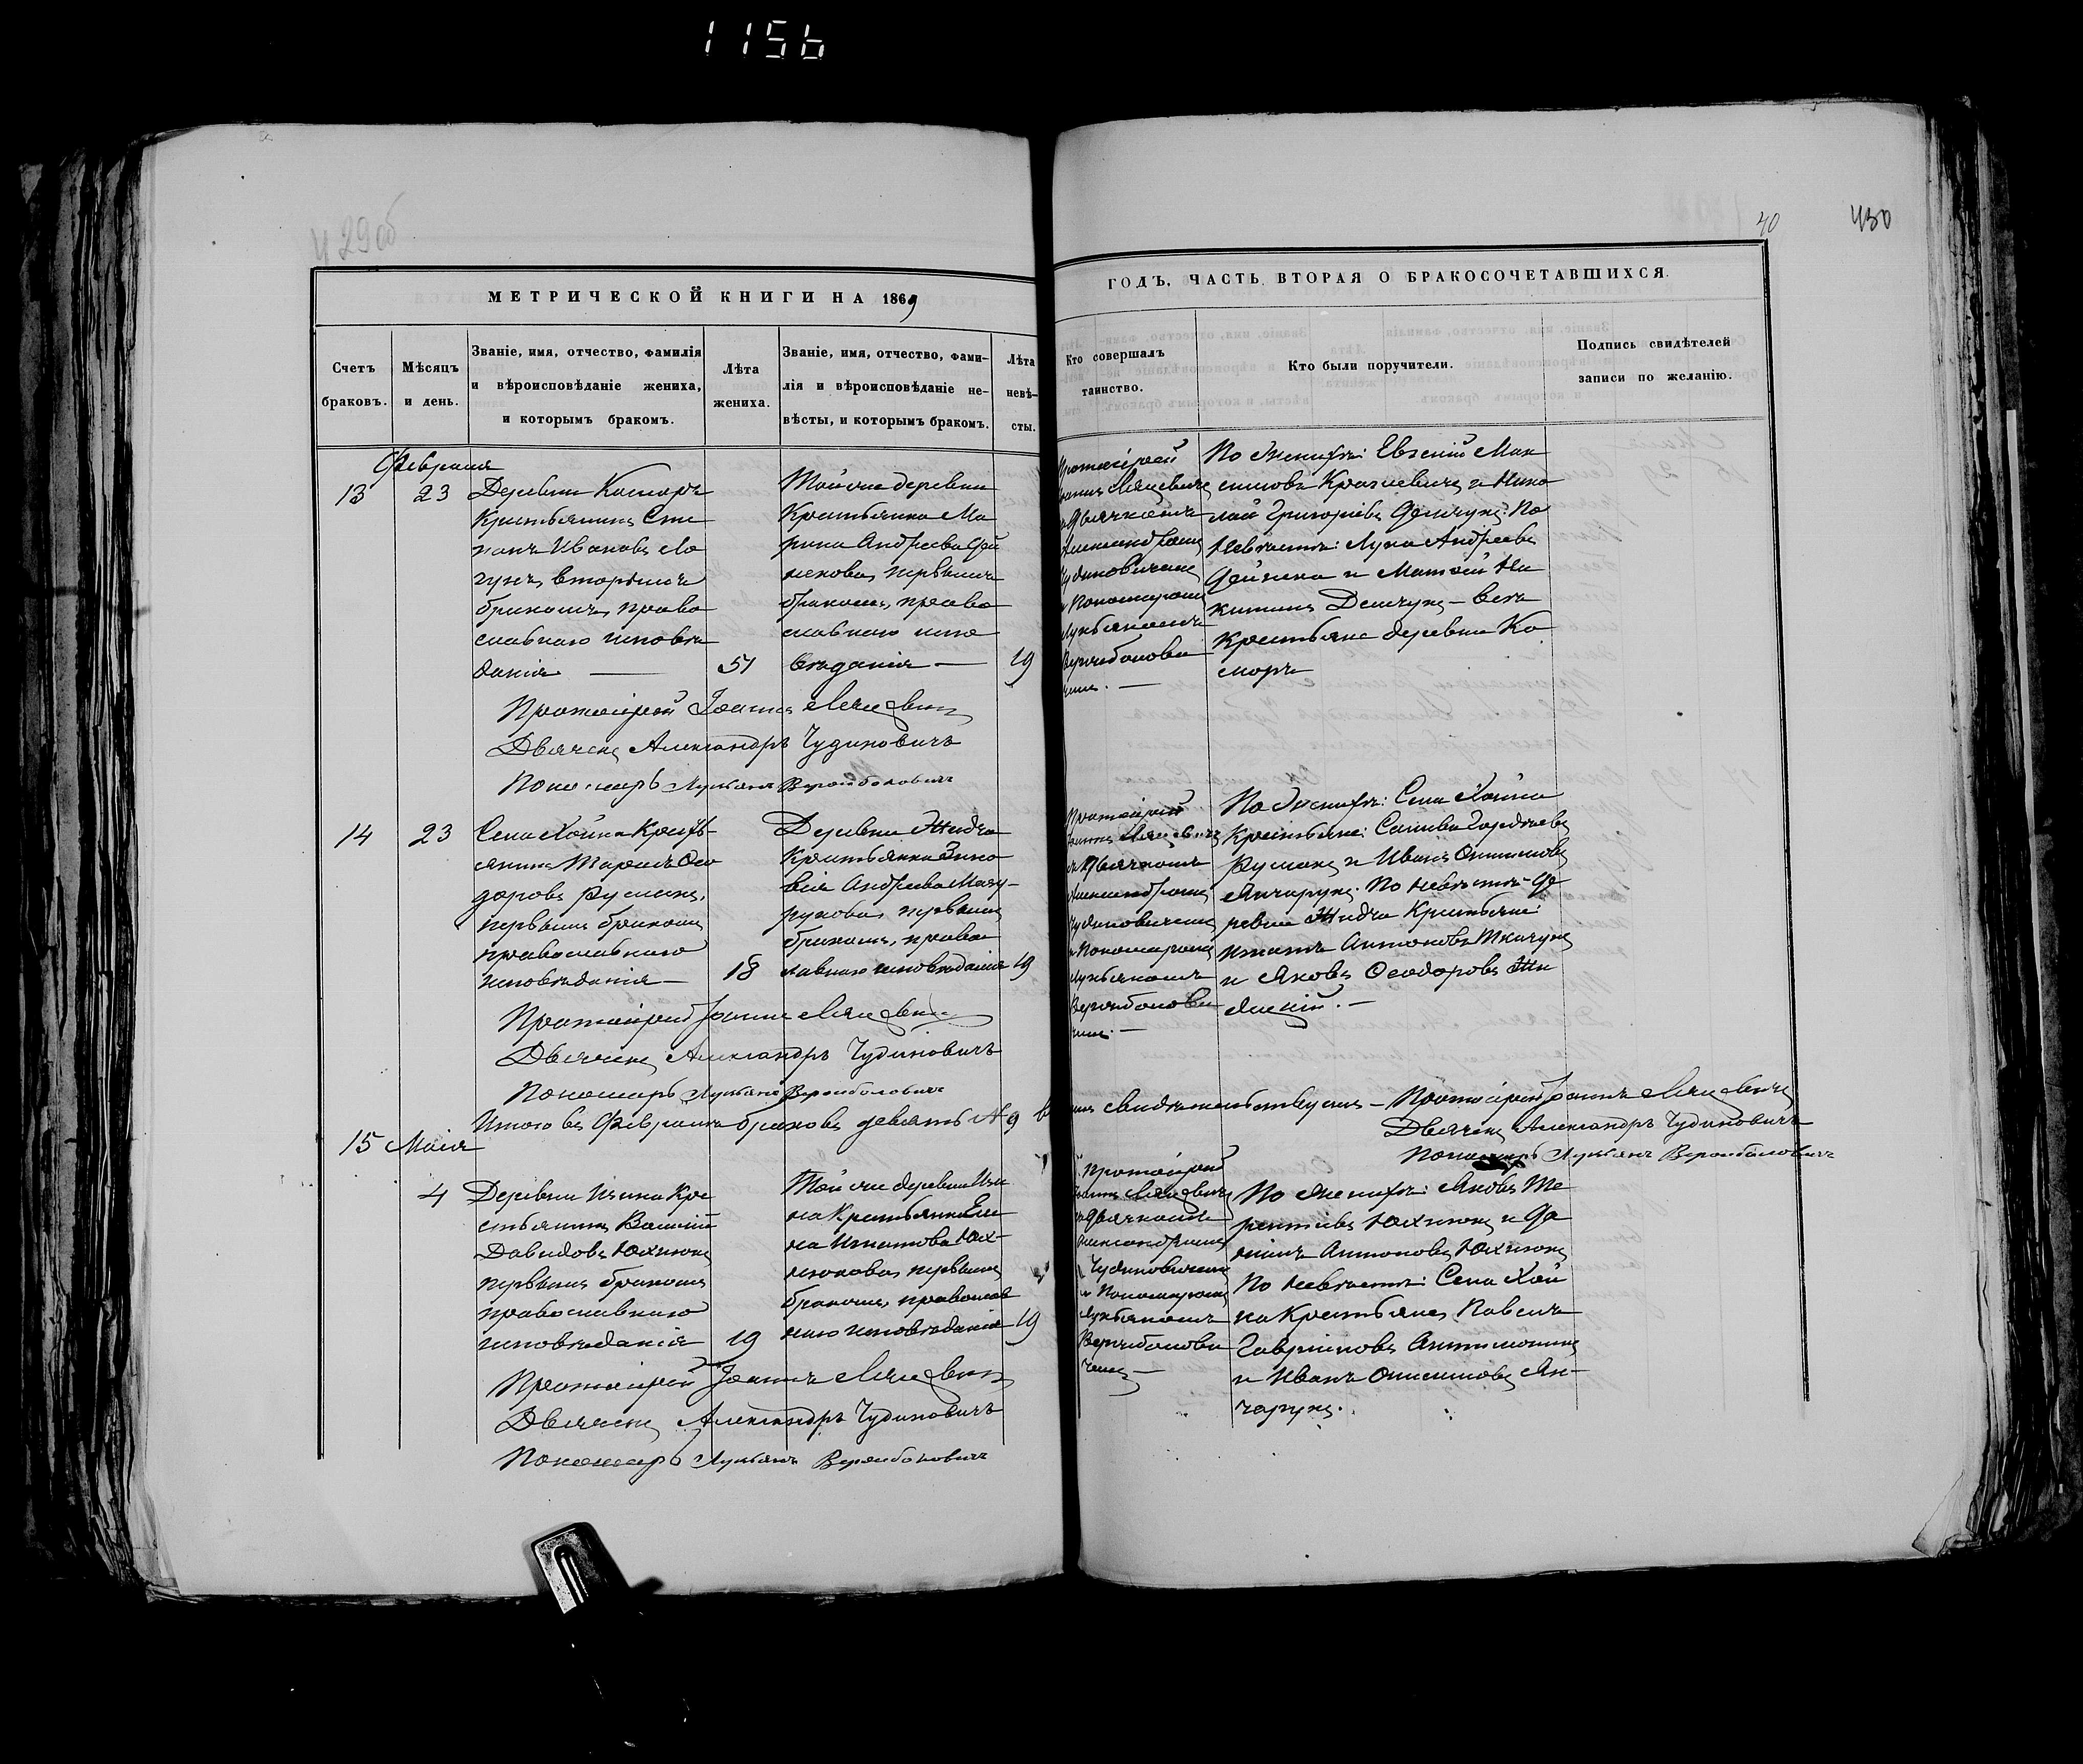 1156
429об
40
430
МЕТРИЧЕСКОЙ КНИГИ НА 1869
ГОДЪ, ЧАСТЬ ВТОРАЯ О БРАКОСОЧЕТАВШИХСЯ.
Счетъ
браковъ.
Мѣсяцъ
и день.
Званіе, имя, отчество, фамилія
и вѣроисповѣданіе жениха,
и которымъ бракомъ.
Лѣта
жениха.
Званіе, имя, отчество, фами-
лія и вѣроисповѣданіе не-
вѣсты, и которымъ бракомъ.
Лѣта
невѣ-
сты.
Кто совершалъ
таинство.
Кто были поручители.
Подпись свидѣтелей
записи по желанію.
Февраля
13
23
Деревни Коморъ
Крестьянинъ Сте
панъ Ивановъ Ло
гунъ, вторымъ
бракомъ, право
славнаго исповѣ
данія —
51
Той же деревни
Крестьянка Ма
рина Андреева Дей
некова, первымъ
бракомъ, право
славнаго испо
вѣданія —
19
Протоіерей
Іоаннъ Лящевичъ
съ Дьячкомъ
Александромъ
Чудиновичемъ
и Пономаремъ
Лукьяномъ
Вержболови
чемъ. —
По Женихѣ: Евгеній Мак
симовъ Крагиевичъ и Нико
лай Григоріевъ Демчукъ. По
Невѣстѣ: Лука Андреевъ
Дейнека и Матѳей Ни
китинъ Демчукъ — всѣ
Крестьяне деревни Ко
моръ
Протоіерей Іоаннъ Лящевичъ
Дьячекъ Александръ Чудиновичъ
Пономарь Лукьянъ Вержболовичъ
14
23
Села Хойна Кресть-
янинъ Тарасъ Ѳео
доровъ Русикъ,
первымъ бракомъ
православнаго
исповѣданія —
18
Деревни Жидча
Крестьянка Зино
вія Андреева Мазу-
рукова, первымъ
бракомъ, право
славнаго исповѣданія
19
Протоіерей
Іоаннъ Лящевичъ
съ Дьячкомъ
Александромъ
Чудиновичемъ
и Пономаремъ
Лукьяномъ
Вержболови
чемъ. —
По Женихѣ: Села Хойна
Крестьяне: Савива Гордѣевъ
Русикъ и Иванъ Онисимовъ
Янчарукъ. По Невѣстѣ — де
ревни Жидча Крестьяне:
Игнатъ Антоновъ Ткачукъ
и Яковъ Ѳеодоровъ
Протоіерей Іоаннъ Лящевичъ
Дьячекъ Александръ Чудиновичъ
Пономарь Лукьянъ Вержболовичъ
Итого въ Февралѣ браковъ девять № 9
свидѣтельствуемъ — Протоіерей Іоаннъ Лящевичъ
Дьячекъ Александръ Чудиновичъ
Пономарь Лукьянъ Вержболовичъ
15 Маія
4
Деревни Изина Кре
стьянинъ Василій
Давидовъ Юхнюкъ
первымъ бракомъ
православнаго
исповѣданія
19
Той же деревни Изи
на Крестьянка Еле
на Игнатова Юх-
нюкова, первымъ
бракомъ, православ
наго исповѣданія
19
Протоіерей
Іоаннъ Лящевичъ
съ Дьячкомъ
Александромъ
Чудиновичемъ
и Пономаремъ
Лукьяномъ
Вержболови
чемъ —
По Женихѣ: Яковъ Те
рентіевъ Юхнюкъ и Де
нисъ Антоновъ Юхнюкъ
По Невѣстѣ: Села Хой
на Крестьяне, Павелъ
Гавриловъ
и Иванъ Онисимовъ Ян-
чарукъ.
Протоіерей Іоаннъ Лящевичъ
Дьячекъ Александръ Чудиновичъ
Пономарь Лукьянъ Вержболовичъ